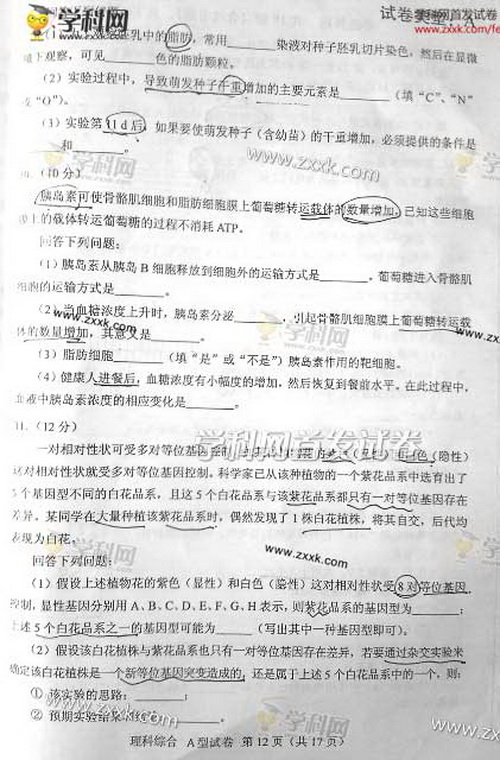 学科网
试卷类型：A
学科网首发试卷
www.zxxk.com/fe
胚乳中的脂肪，常用______染液对种子胚乳切片染色，然后在显微
镜下观察，可见______色的脂肪颗粒。
（2）实验过程中，导致萌发种子干重增加的主要元素是______（填“C”、“N”
或“O”）。
（3）实验第11 d后，如果要使萌发种子（含幼苗）的干重增加，必须提供的条件是
______和______。
学科网
www.zxxk.com
（10分）
胰岛素可使骨骼肌细胞和脂肪细胞膜上葡萄糖转运载体的数量增加，已知这些细胞
膜上的载体转运葡萄糖的过程不消耗ATP。
回答下列问题：
（1）胰岛素从胰岛B细胞释放到细胞外的运输方式是______，葡萄糖进入骨骼肌
细胞的运输方式是______。
（2）当血糖浓度上升时，胰岛素分泌______，引起骨骼肌细胞膜上葡萄糖转运载
体的数量增加，其意义是______。
www.zxxk.com
学科网
（3）脂肪细胞______（填“是”或“不是”）胰岛素作用的靶细胞。
（4）健康人进餐后，血糖浓度有小幅度的增加，然后恢复到餐前水平。在此过程中，
血液中胰岛素浓度的相应变化是______。
31.（12分）
学科网首发试卷
一对相对性状可受多对等位基因控制，
色（隐性）
这对相对性状就受多对等位基因控制。科学家已从该种植物的一个紫花品系中选育出了
5个基因型不同的白花品系，且这5个白花品系与该紫花品系都只有一对等位基因存在
差异。某同学在大量种植该紫花品系时，偶然发现了1株白花植株，将其自交，后代均
表现为白花。
学科网
www.zxxk.com
回答下列问题：
（1）假设上述植物花的紫色（显性）和白色（隐性）这对相对性状受8对等位基因
控制，显性基因分别用A、B、C、D、E、F、G、H表示，则紫花品系的基因型为______；
上述5个白花品系之一的基因型可能为______（写出其中一种基因型即可）。
（2）假设该白花植株与紫花品系也只有一对等位基因存在差异，若要通过杂交实验来
确定该白花植株是一个新等位基因突变造成的，还是属于上述5个白花品系中的一个，则：
① 该实验的思路：______；
② 预期实验结果
学科网
www.zxxk.com
理科综合 A型试卷 第12页（共17页）